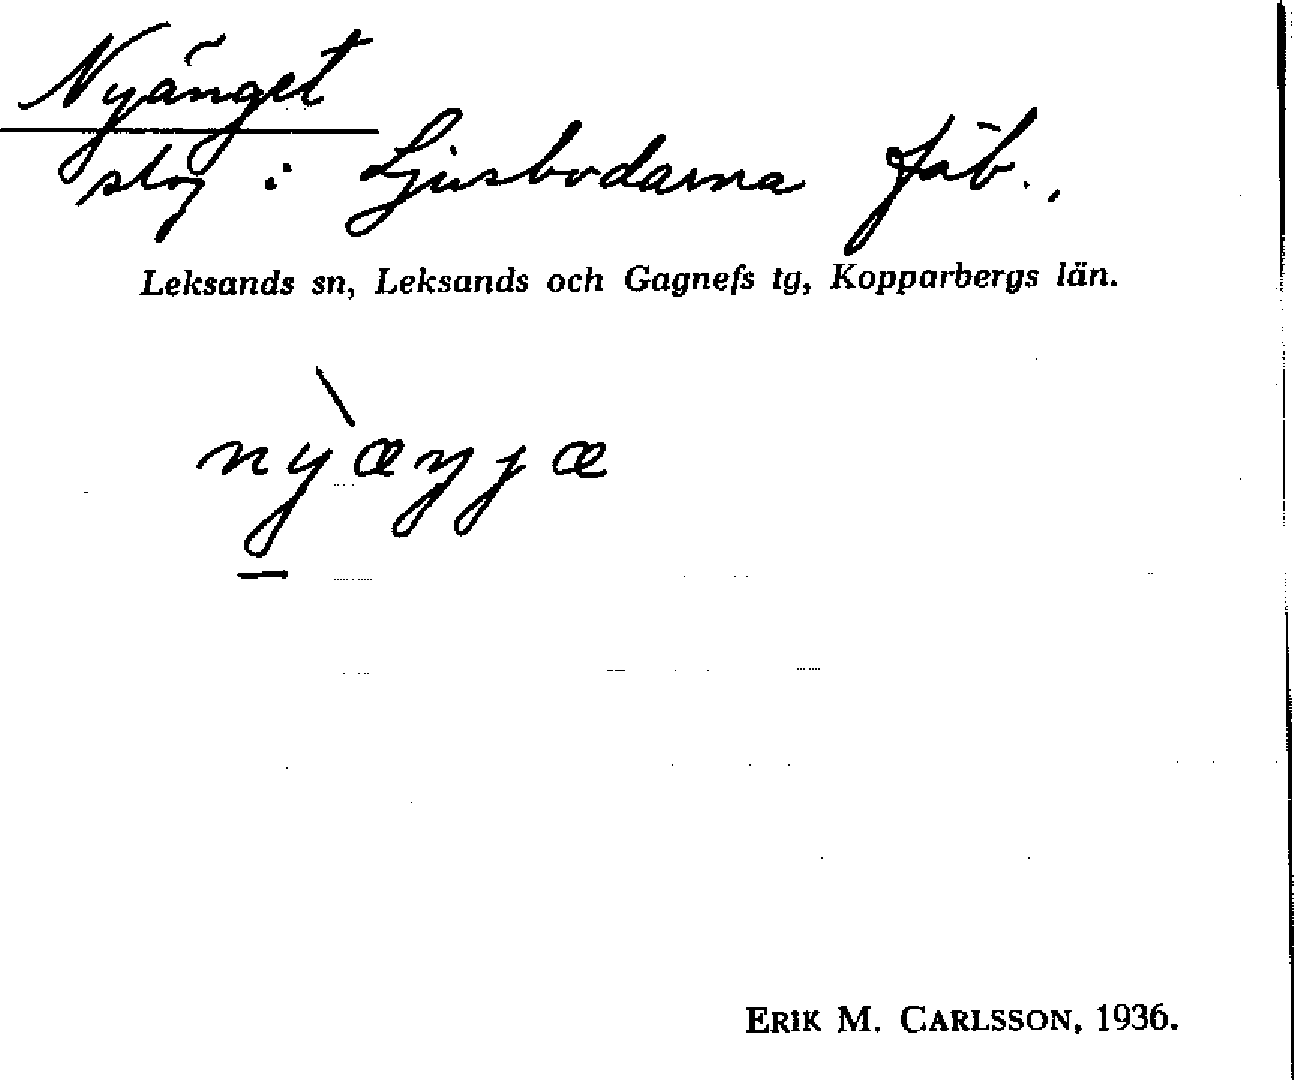 Nyänget
slog i Ljusbodarna fäb.,
Leksands sn, Leksands och Gagnefs tg, Kopparbergs län.
nỳ̠æŋjæ
ERIK M. CARLSSON, 1936.